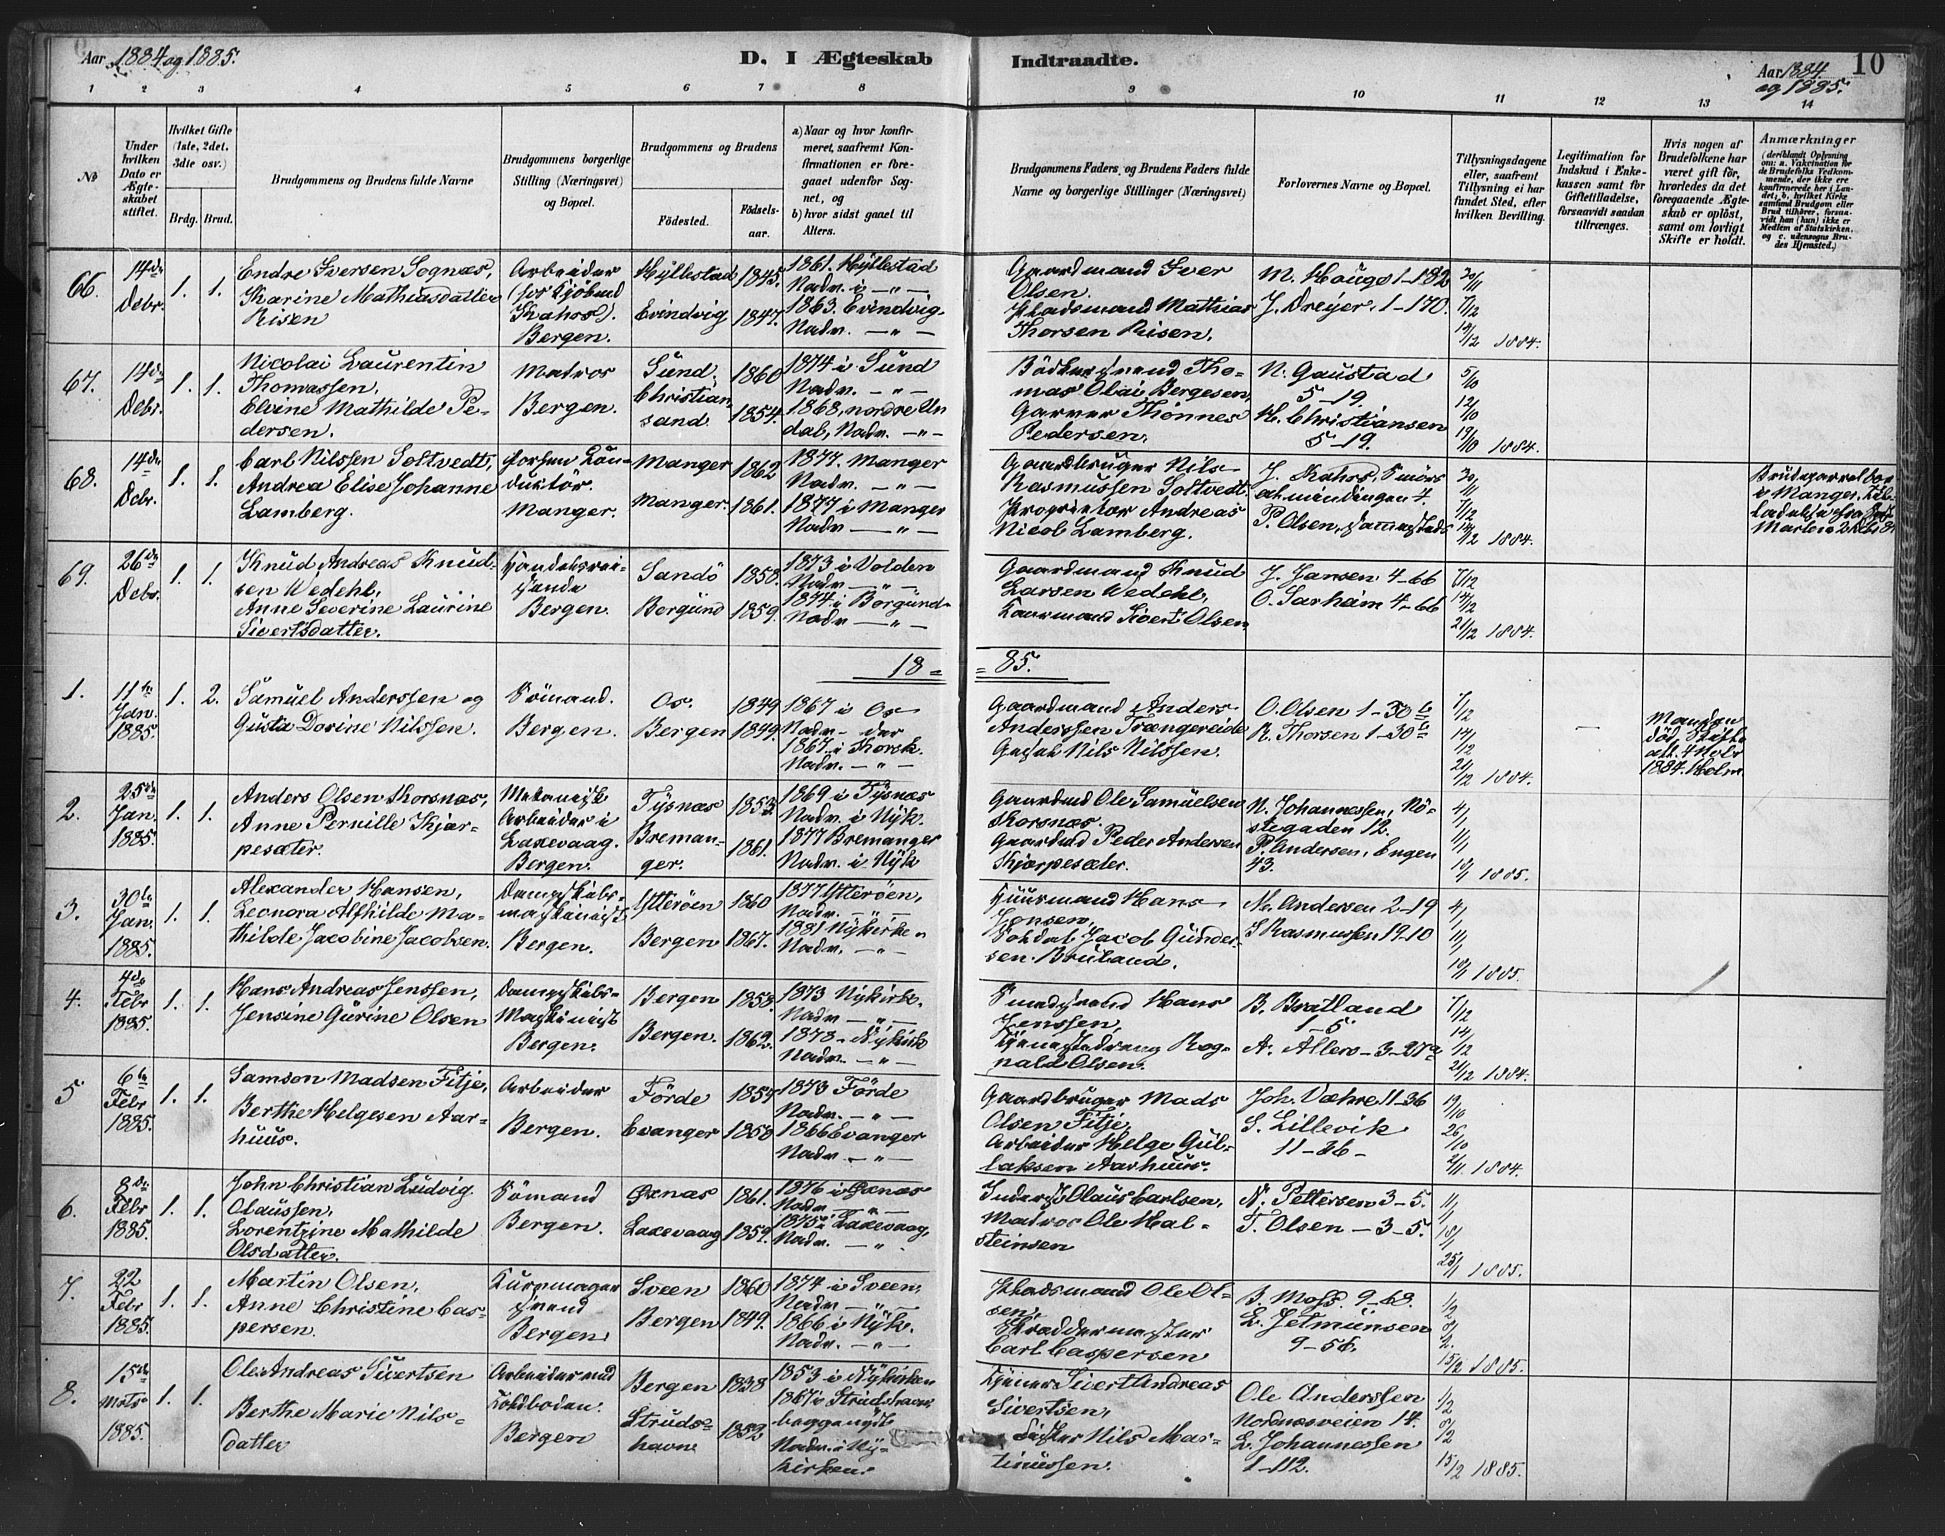 Aar 1884 og 1885.
D. I Ægteskab Indtraadte.
Aar 1884 og 1885.
10
1 2 3 4 5 6 7 8 9 10 11 12 13 14
No
Under hvilken Dato er Ægteskabet stiftet.
Hvilket Gifte (1ste, 2det, 3die osv.)
Brdg. Brud.
Brudgommens og Brudens fulde Navne
Brudgommens borgerlige Stilling (Næringsvei) og Bopæl.
Brudgommens og Brudens
Födested.
Födselsaar.
a) Naar og hvor konfirmeret, saafremt Konfirmationen er foregaaet udenfor Sognet, og
b) hvor sidst gaaet til Alters.
Brudgommens Faders og Brudens Faders fulde Navne og borgerlige Stillinger (Næringsvei)
Forlovernes Navne og Bopæl.
Tillysningsdagene eller, saafremt Tillysning ei har fundet Sted, efter hvilken Bevilling.
Legitimation for Indskud i Enkekassen samt for Giftetilladelse, forsaavidt saadan tiltrænges.
Hvis nogen af Brudefolkene har været gift før, hvorledes da det foregaaende Ægteskab er opløst, samt om lovligt Skifte er holdt.
Anmærkninger
66. 14de Decbr. 1. 1.
Endre Iversen Sognæs,
Karine Mathiasdatter
Risen
Arbeider
Bergen.
Hyllestad 1845.
Evindvig 1847.
1861. Hyllestad
Nadv. i — " —
1863. Evindvig.
Nadv. — " —
Gaardmand Iver
Olsen.
Pladsmand Mathias
Thorsen Risen.
M. Haugo 1-182
J. Dreyer. 1-170.
30/11
7/12
14/12 1884.
67. 14de Decbr. 1. 1.
Nicolai Laurentin
Thomassen,
Elvine Mathilde Pedersen.
Matros
Bergen.
Sund. 1860
Christiansand 1854.
1874 i Sund
Nadv. — " —
1868, nordre Undal, Nadv. — " —
Bödkersvend Thomas Olai Bergesen,
Garver Thönnes
Pedersen.
N. Gaustad
5-19.
H. Christiansen
5-19.
5/10
12/10
19/10 1884.
68. 14de Decbr. 1. 1.
Carl Nilssen Soltvedt,
Andrea Elise Johanne
Lamberg.
Manger.
Manger 1862
Manger. 1861.
1877. Manger
Nadv. — " —
1877 i Manger
Nadv. — " —
Gaardbruger Nils
Rasmussen Soltvedt.
Proprietær Andreas
Nicol. Lamberg.
J. Kahrs, Smörsalmindingen 4
P. Olsen,
30/11
7/12
14/12 1884.
69. 26de Decbr. 1. 1.
Knud Andreas Knudsen Wedehl,
Anne Severine Laurine
Sivertsdatter.
Handelsreisende
Bergen.
Sandö 1858.
Borgund 1859.
1873 i Volden
Nadv. — " —
1874 i Borgund
Nadv. — " —
Gaardmand Knud
Larsen Wedehl,
Gaardmand Sivert Olsen
J. Jansen 4-66
O. Sarheim 4-66
7/12
14/12
21/12 1884.
18 = = 85.
1. 11te Jan. 1885. 1. 2.
Samuel Anderssen og
Gusta Dorine Nilssen.
Sömand.
Bergen.
Os. 1849
Bergen 1849.
1867 i Os
Nadv. — der
1867. i Korsk.
Nadv. — " —
Gaardmand Anders
Anderssen Trængereide
Nils Nilssen.
O. Olsen 1-30 b
R. Thorsen 1-30 b
7/12
14/12
21/12 1884.
—
Manden
död, Skifte
att. 4 Nvbr
1884. Holm
2. 25de Jan. 1885. 1. 1.
Anders Olsen Thorsnæs,
Anne Pernille Kjærpesæter.
Mekanisk
Arbeider i
Laxevaag.
Bergen.
Tysnæs 1853.
Bremanger. 1861.
1869 i Tysnæs
Nadv. i Nyk.
1877 Bremanger
Nadv. i Nyk
Gaardmd Ole Samuelsen
Thorsnæs.
Gaardmd Peder Andersen
Kjærpesæter.
N. Johannessen, Nöstegaden 12.
P. Andersen, Engen
43.
4/1
11/1
18/1 1885.
3. 30te Jan. 1885. 1. 1.
Alexander Hansen,
Leonora Alfhilde Mathilde Jacobine Jacobsen.
Dampskibsmaskinist
Bergen.
Ytteröen 1860
Bergen 1867.
1877 Ytteröen,
Nadv. — " —
1881 Nykirken
Nadv. — " —
Huusmand Hans
Jensen,
Soldat Jacob Gundersen Bruland.
M. Andersen 2-19
S Rasmussen 19-10
4/1
11/1
18/1 1885.
4. 4de Febr 1885. 1. 1.
Hans Andreas Jenssen,
Jensine Gurine Olsen
Dampskibs-
Maskinist
Bergen.
Bergen 1853.
Bergen. 1862.
1873 Nykirke.
Nadv — " —
1878 — Nykirk
Nadv. — " —
Smedsvend Hans
Jenssen,
Tjenestedreng Rognald Olsen.
B. Bratland
1-5
A. Allers — 3-27 a
7/12
14/12
21/12 1884.
5 6te Febr 1885. 1. 1.
Samson Madsen Fitje,
Berthe Helgesen Aarhuus.
Arbeider
Bergen.
Förde 1857
Evanger 1850
1873 Förde
Nadv. — " —
1866 Evanger
Nadv. — " —
Gaardbruger Mads
Olsen Fitje,
Arbeider Helge Gullaksen Aarhuus.
Joh. Væhre 11-36
S. Lillevik
11-36-
19/10
26/10
2/11 1884.
6. 8de Febr 1885. 1. 1.
John Christian Ludvig
Olaussen,
Lorentzine Mathilde
Olsdatter.
Sömand
Bergen.
Öxnæs 1861.
Laxevaag 1859.
1876 i Öxnæs
Nadv. — " —
1875 i Laxevaag,
Nadv. — " —
Inderst Olaus Carlsen,
Matros Ole Halsteinsen
N. Pettersen 3-5.
T. Olsen — 3-5.
11/1
18/1
25/1 1885.
7. 22 Febr 1885. 1. 1.
Martin Olsen,
Anne Christine Caspersen.
Kurvmagersvend
Bergen
Sveen 1860
Bergen 1849.
1874 i Sveen,
Nadv. — " —
1866 i Nyk.
Nadv. — " —
Pladsmand Ole Olsen,
Skræddermester
Carl Caspersen
B. Moss. 9-68.
L. Jetmunsen
9-58.
1/2
8/2
15/2 1885.
8. 15de Mats 1885. 1. 1.
Ole Andreas Sivertsen
Berthe Marie Nilsdatter
Arbeider ved
Toldboden.
Bergen
Bergen 1838
Strudshavn 1852
1853 i Nykirken
1867 i Strudshavn
begge nydt
Nadv. i Nykirken.
Sivert Andreas
Sivertsen,
Fisker Nils Martinussen.
Ole Anderssen
Nordnæsveien 14.
L. Johannessen
1-112.
1/2
8/2
15/2 1885.